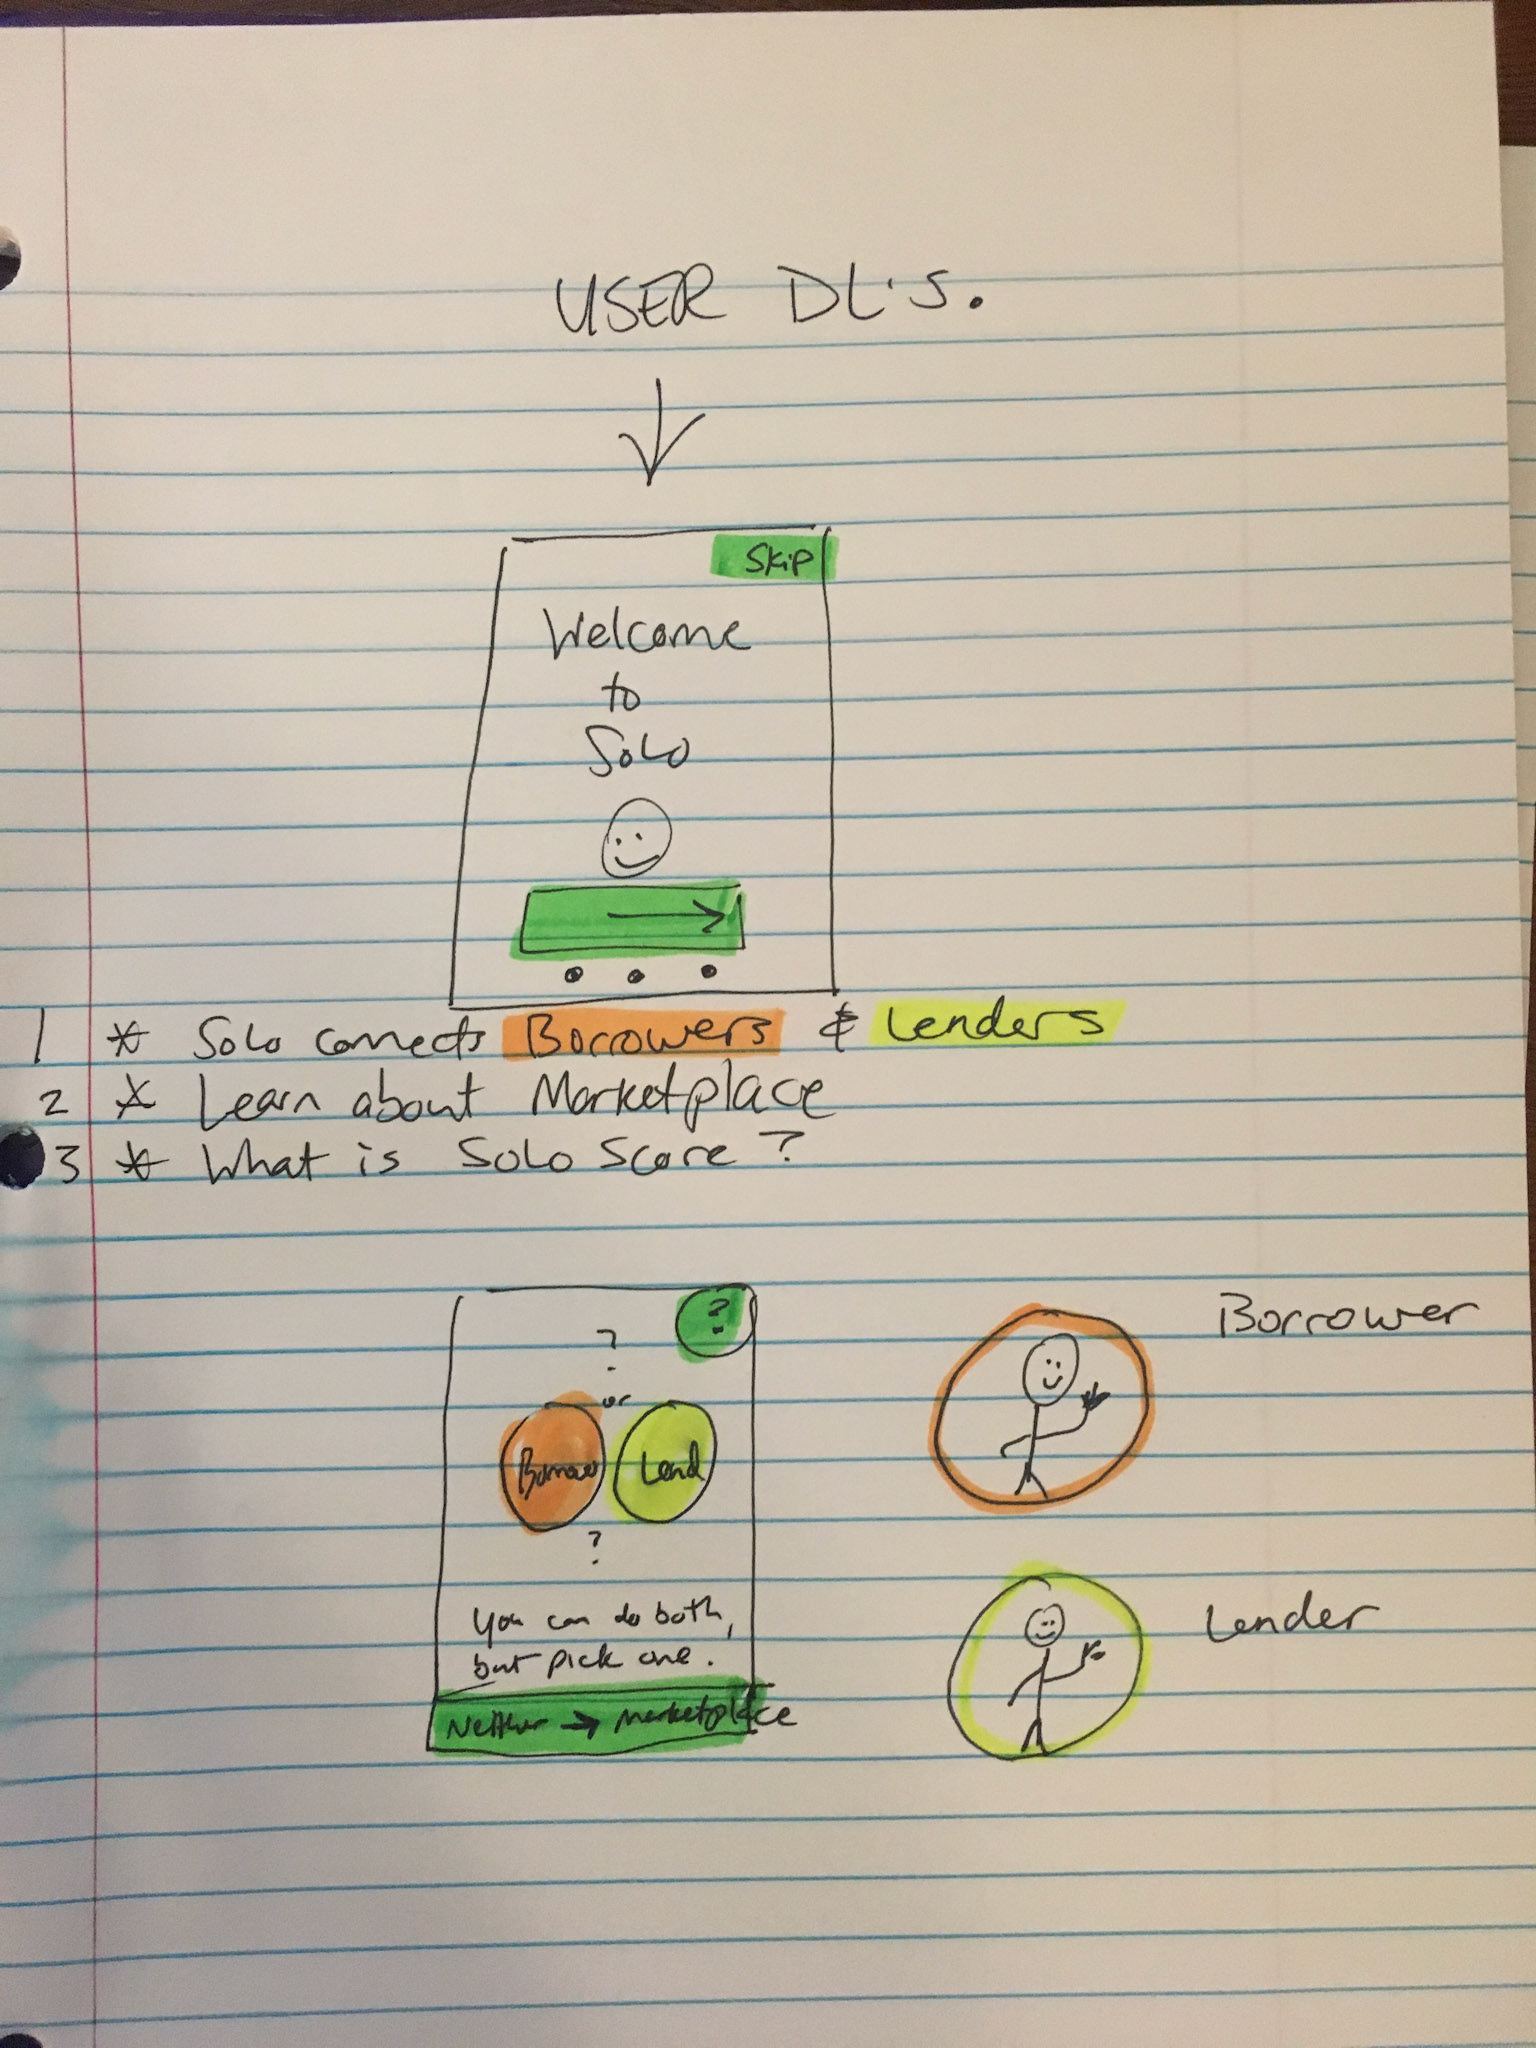 USER DL'S.
Skip
Welcome
to
Solo
1 * Solo connects Borrowers & Lenders
2 * Learn about Marketplace
3 * What is Solo Score?
?
?
or
Borrow Lend
?
You can do both,
but pick one.
Neither → Marketplace
Borrower
Lender